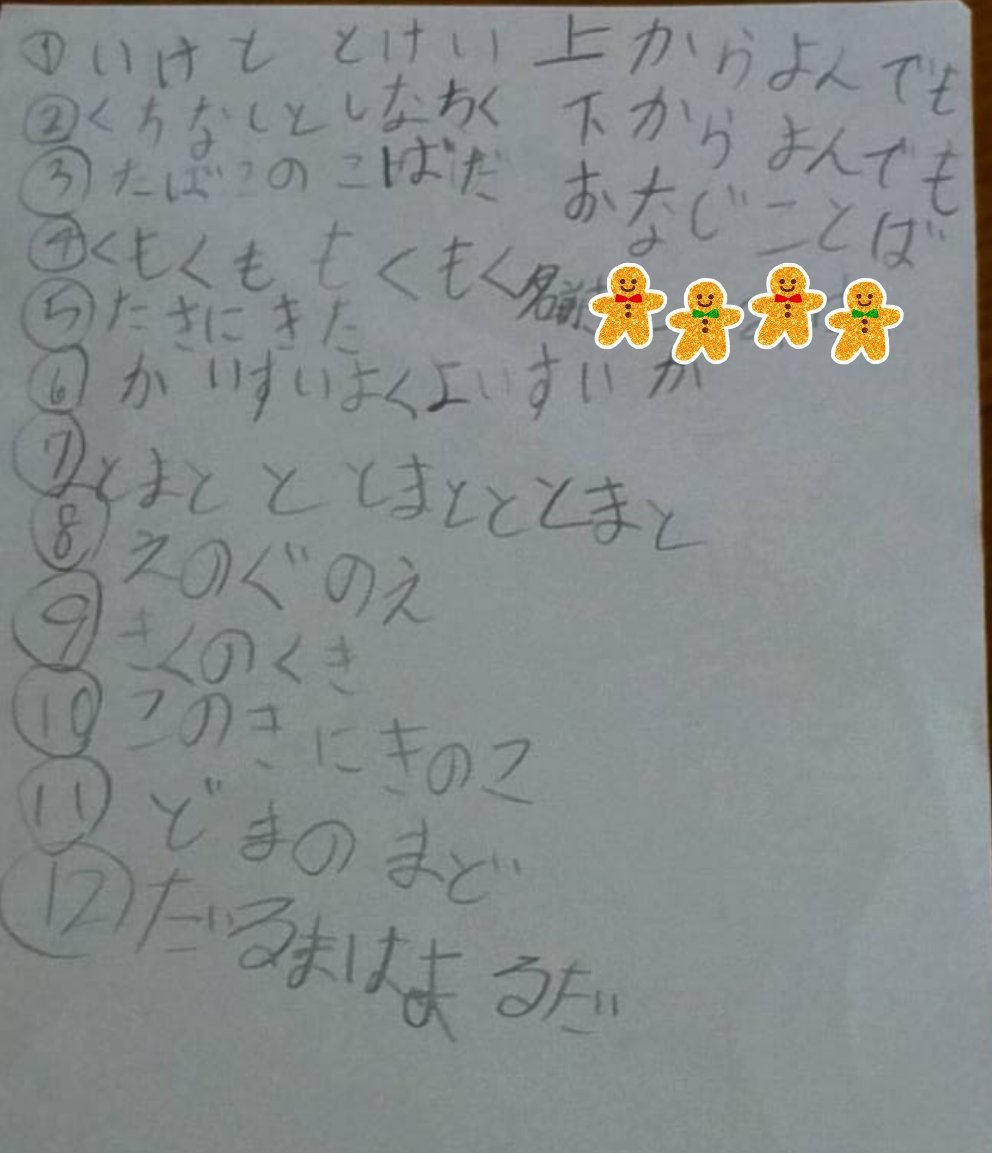 上からよんでも
下からよんでも
おなじことば
名前
① いけと とけい
② くちなしとしなちく
③ たばこのこばだ
④ くもくも もくもく
⑤ たきにきた
⑥ かいすいよくよいすいか
⑦ とまと と とまとととまと
⑧ えのぐのえ
⑨ きくのくき
⑩ このきにきのこ
⑪ どまのまど
⑫ だるまはまるだ